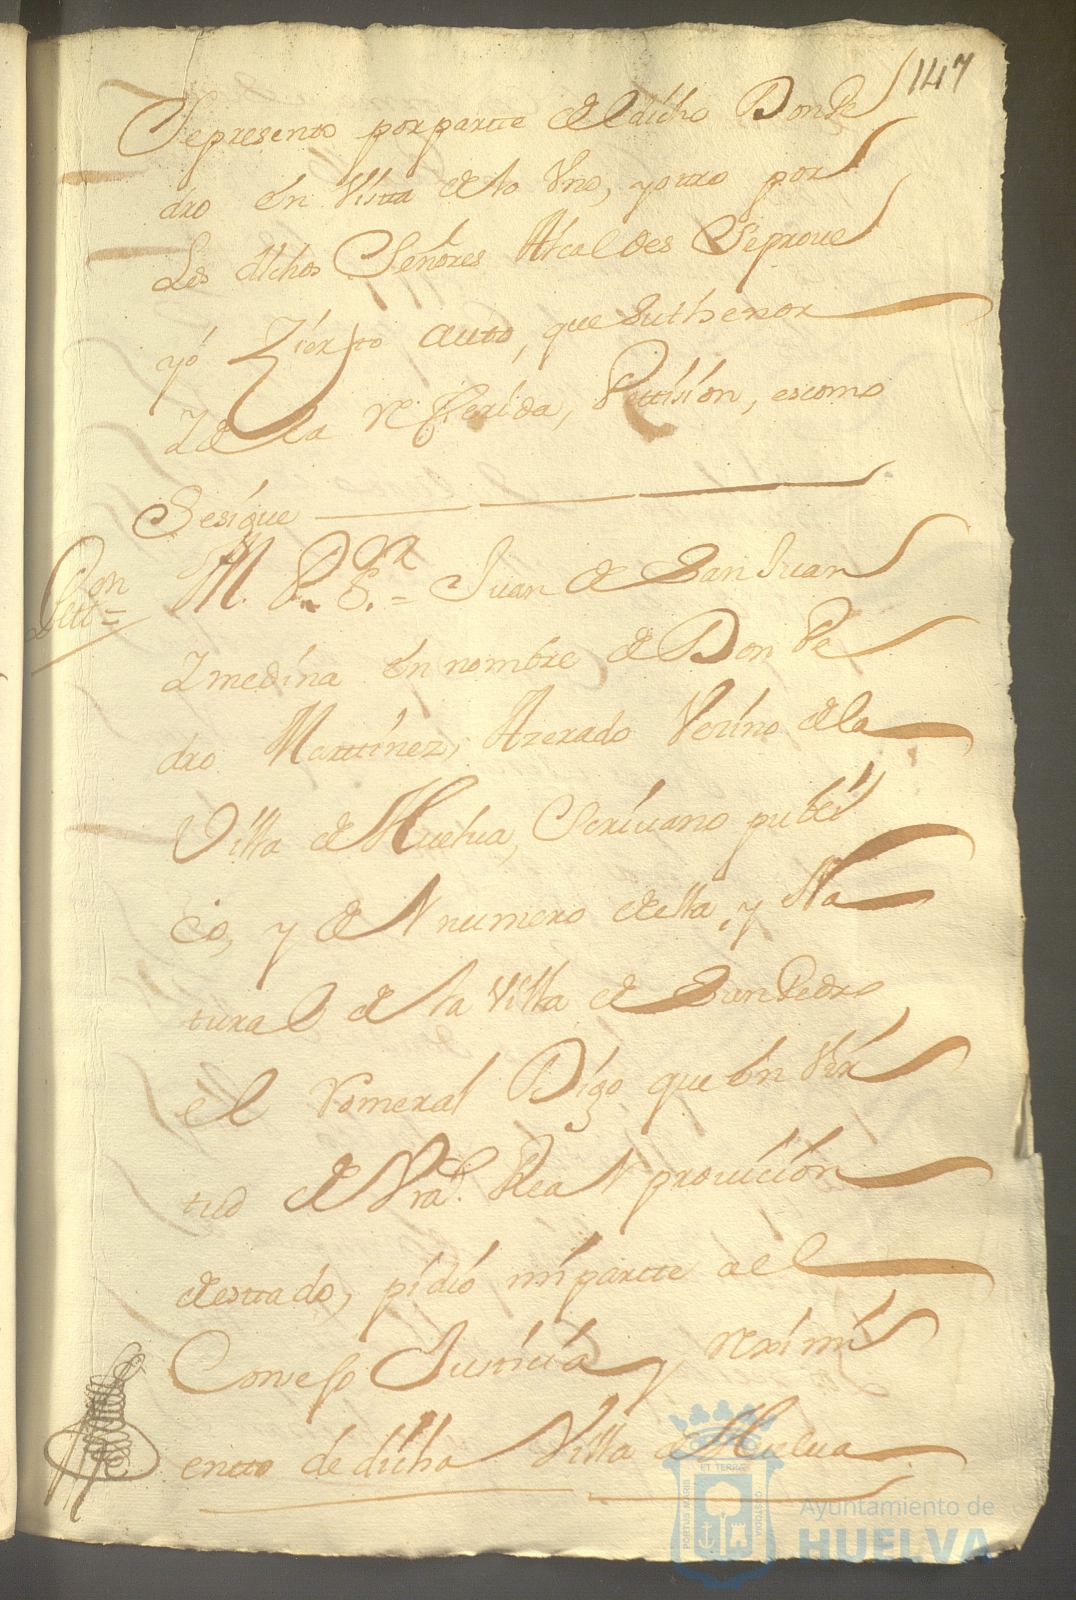 147
Sepresento porparte deldicho Don Pe
dro en Vista delo Vno, yotro por
Los dichos Señores Alcaldes Seproue
yó Zierto auto, que Suthenor
Y de la referida, Pettision, escomo
Sesigue
Pett.on = M. P. S.or = Juan de San Juan
Y medina en nombre de Don Pe
dro Marttinez, Azerado Vezino dela
Villa de Huelua, Scriuano publi
co, y del numero della, y Na
tural de la Villa de San Pedro
el Romeral Digo que en Vir
tud de Vra. Real prouicion
destado, pidió mi partte a el
Consejo Justicia y reximi
entto de dicha Villa de Huelua
PORTUS MARIS ET TERRAE CUSTODIA
Ayuntamiento de
HUELVA